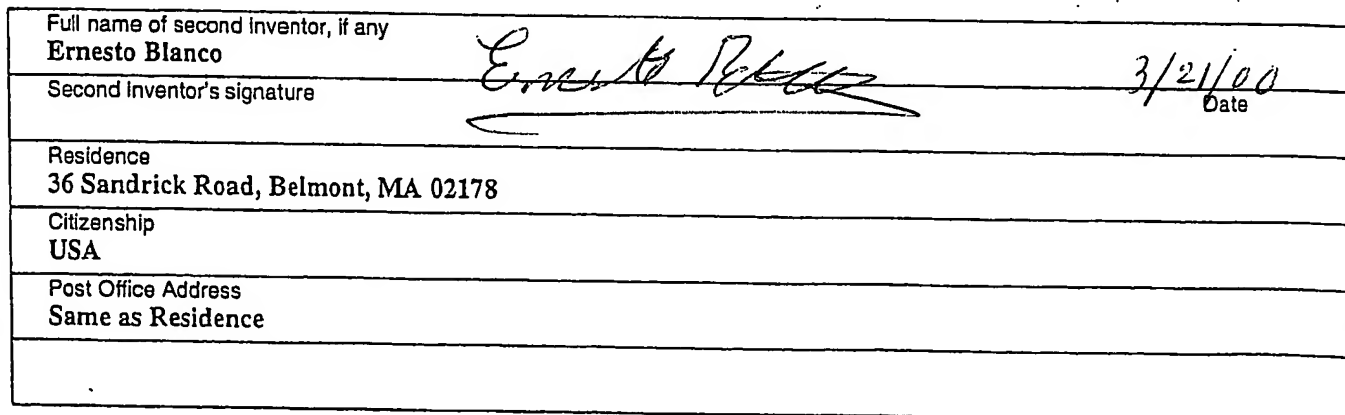 Full name of second inventor, if any
Ernesto Blanco
Second Inventor's signature
Ernesto Blanco
3/21/00
Date
Residence
36 Sandrick Road, Belmont, MA 02178
Citizenship
USA
Post Office Address
Same as Residence